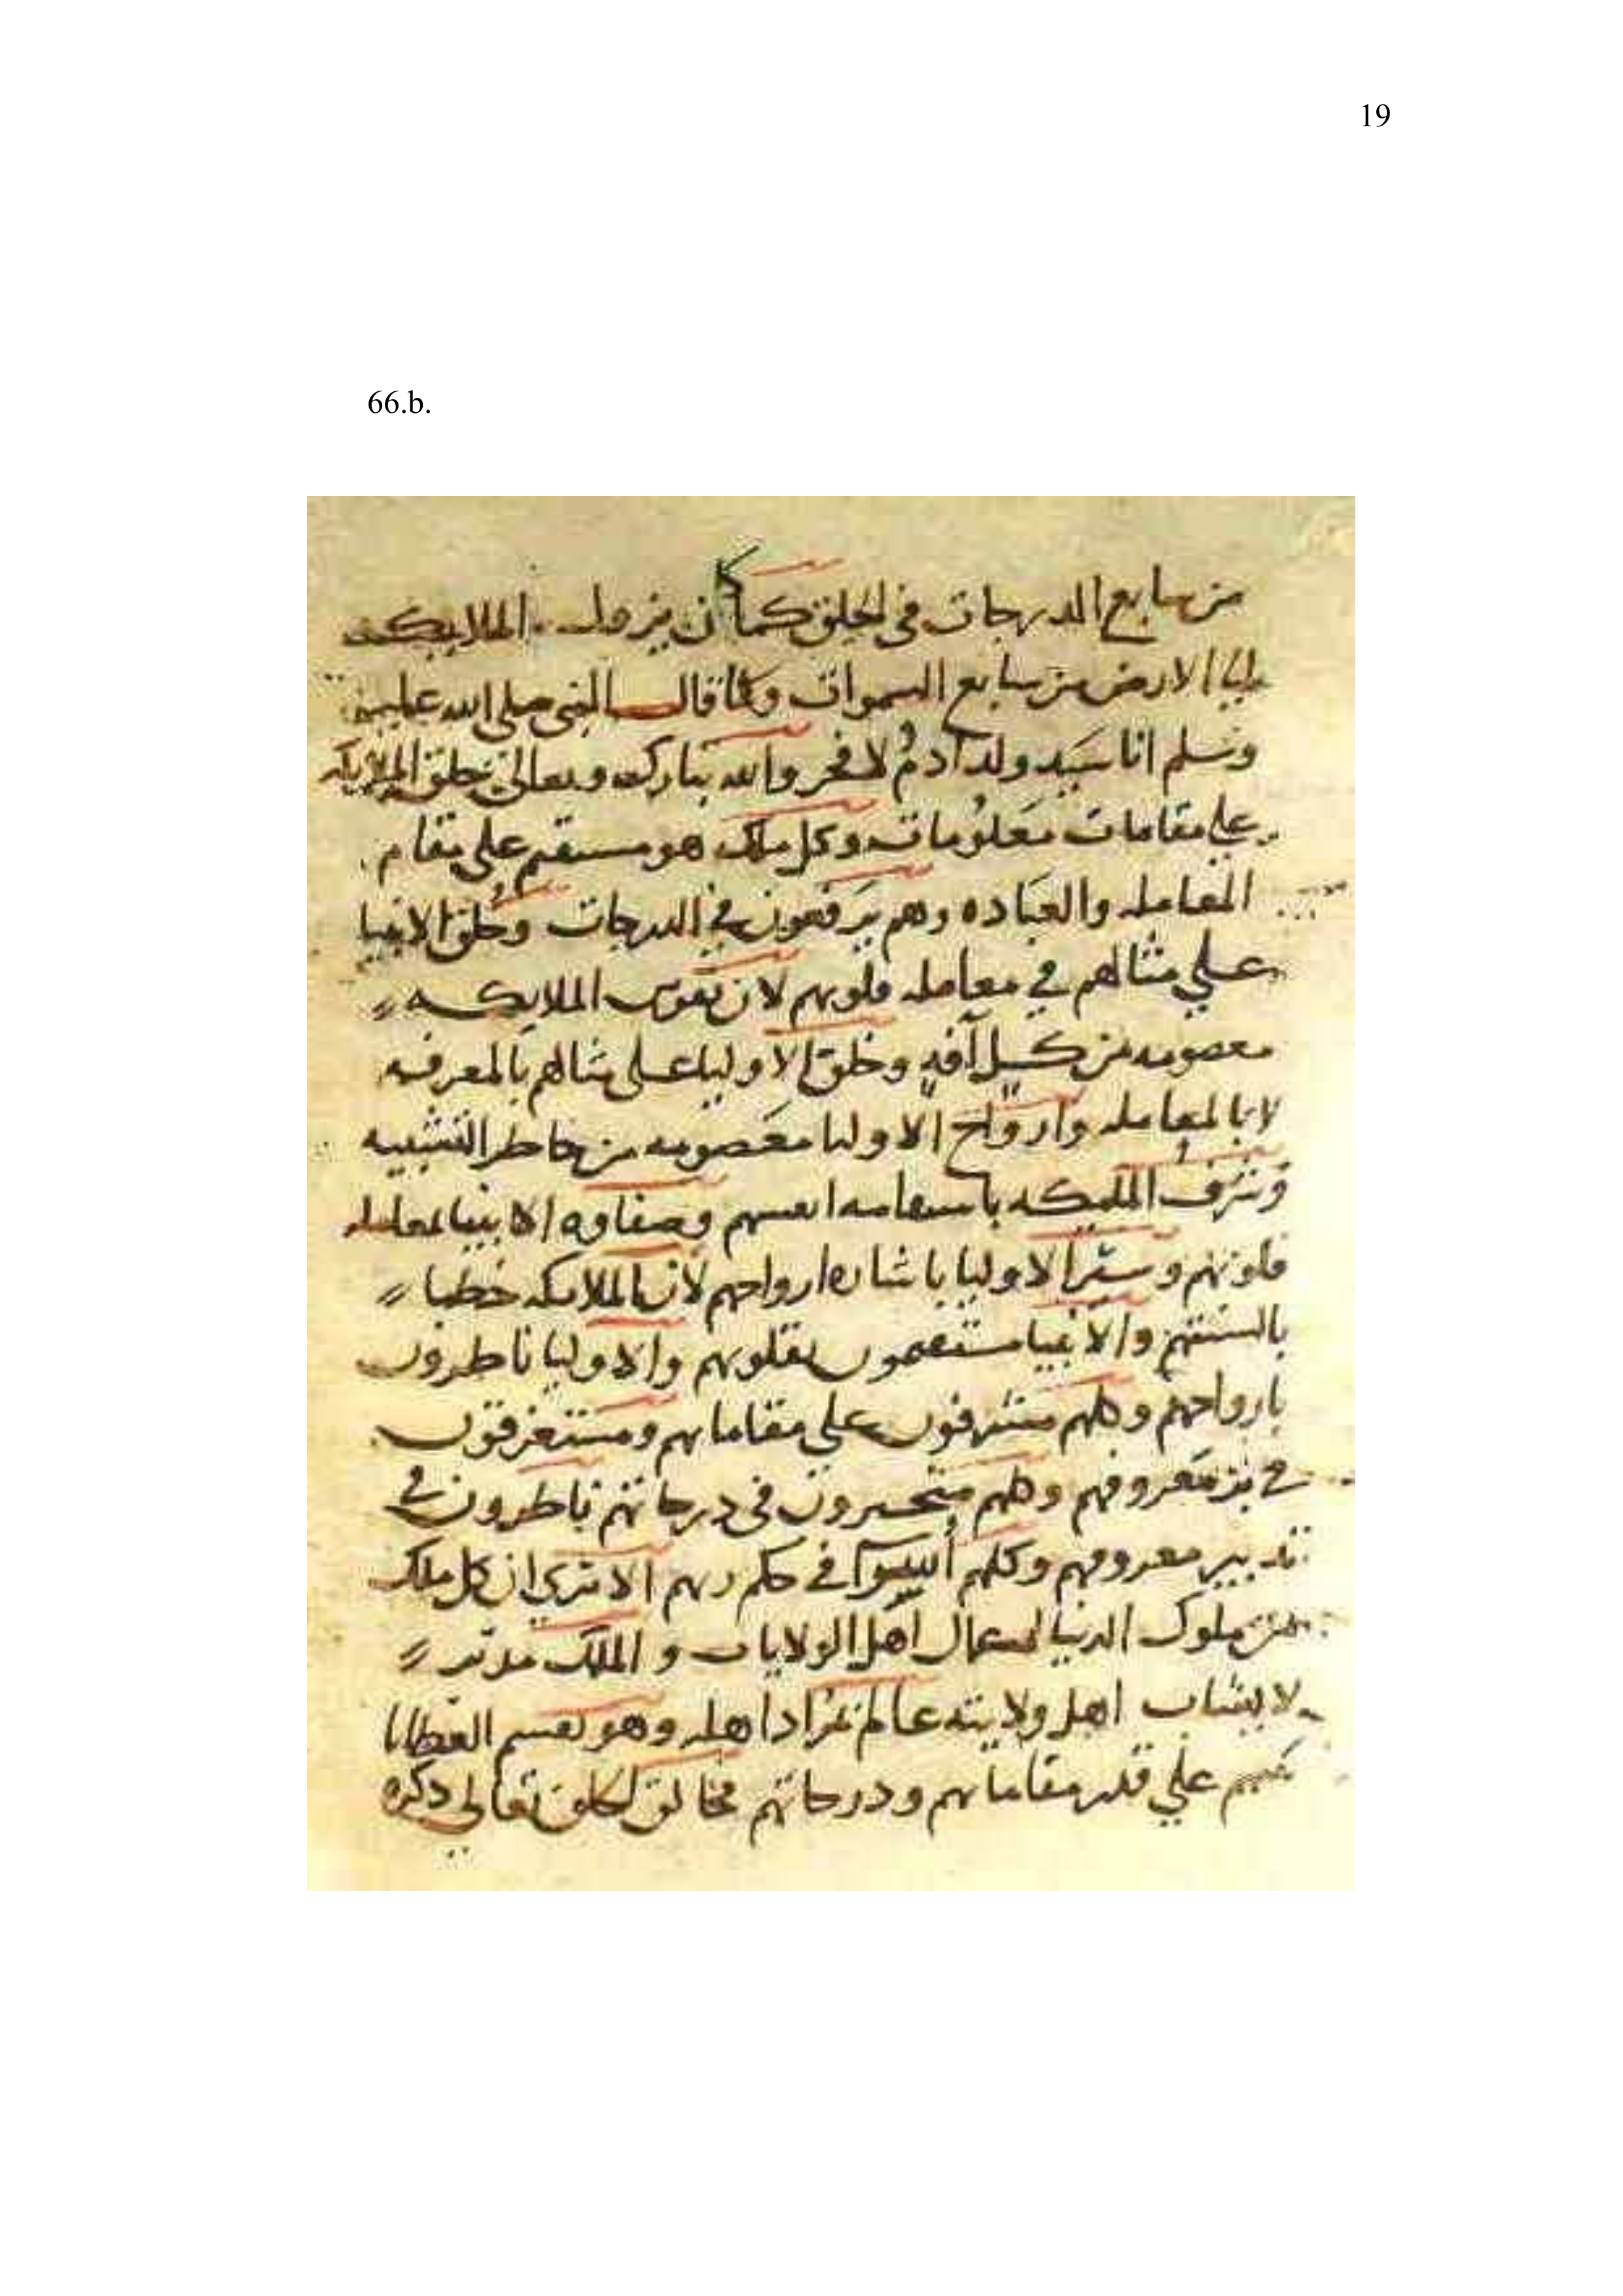 19
66.b.
من سابع الدرجات في الخلق كما كان ينزل الملايكه
الي الارض من سابع السموات وكما قال النبي صلى الله عليه
وسلم انا سَيد ولد آدمُ لا فخر والله تبارك وتعالى خلق الملايكه
علي مقامات مَعلوُمات وكل ملك هو مستقيم على مقام
المعامله والعبَاده وهم يَرفعون في الدرجات وخُلق الانبيا
علي مثالهم في معامله قلوبهم لان نفوس الملايكه
معصومه من كل آفةٍ وخلق الاوليا على مثالهم بالمعرفه
لا بالمعامله وارواح الاوليا معَصومه من خاطر التشبيه
وشرف الملئكه باستقامه انفسهم وصفاوه الانبيا بمعامله
قلوبهم وسرّ الاوليا باشاره ارواحهم لأن الملايكه خطبا
بالسنتهم والانبيا مستعمون بقلوبهم والاوليا ناظرون
بارواحهم وكلهم مشرفون علي مقاماتهم ومستغرقون
في معَروفهم وكلهم متحيرون في درجاتهم ناظرون في
تدبير معروفهم وكلهم في حكم ربهم الا تري ان كل ملك
من ملوك الدنيا اهل الولايات و الملك مدبّر
لا اهل ولايته عالم بمُراد اهله وهو يقسم العطايا
علي قدر مقاماتهم ودرجاتهم فخالق الخلق تعالي ذكره